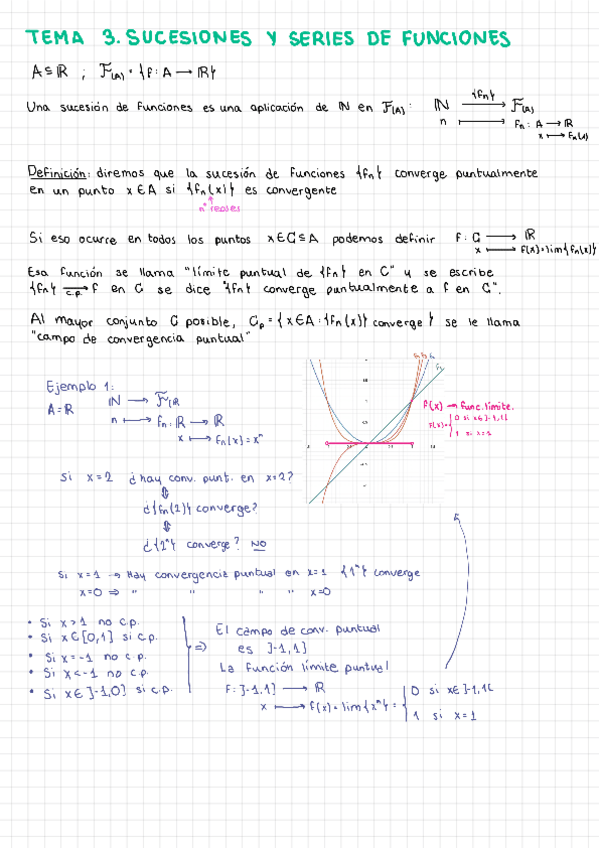 TEMA 3. SUCESIONES Y SERIES DE FUNCIONES
A ⊆ ℝ ; F(A) = {f: A → ℝ}
Una sucesión de funciones es una aplicación de ℕ en F(A): ℕ —{fn}→ F(A)
n ⟼ fn: A → ℝ
x ⟼ fn(x)
Definición: diremos que la sucesión de funciones {fn} converge puntualmente
en un punto x ∈ A si {fn(x)} es convergente
nº reales
Si eso ocurre en todos los puntos x ∈ C ⊆ A podemos definir f: C → ℝ
x ⟼ f(x) = lim{fn(x)}
Esa función se llama "límite puntual de {fn} en C" y se escribe
{fn} →c.p. f en C se dice "{fn} converge puntualmente a f en C".
Al mayor conjunto C posible, Cp = {x ∈ A : {fn(x)} converge} se le llama
"campo de convergencia puntual"
Ejemplo 1:
A = ℝ
ℕ → F(ℝ
n ⟼ fn: ℝ → ℝ
x ⟼ fn(x) = xⁿ
f(x) → func. límite.
f(x) = { 0 si x∈]-1,1[
1 si x=1
Si x=2 ¿hay conv. punt. en x=2?
⇕
¿{fn(2)} converge?
⇕
¿{2ⁿ} converge? NO
Si x=1 → Hay convergencia puntual en x=1 {1ⁿ} converge
x=0 ⇒ " " " " x=0
• Si x>1 no c.p.
• Si x∈[0,1] si c.p.
• Si x=-1 no c.p.
• Si x<-1 no c.p.
• Si x∈]-1,0] si c.p.
⇒ El campo de conv. puntual
es ]-1,1]
La función límite puntual
f: ]-1,1] → ℝ
x ⟼ f(x) = lim{xⁿ} = { 0 si x∈]-1,1[
1 si x=1